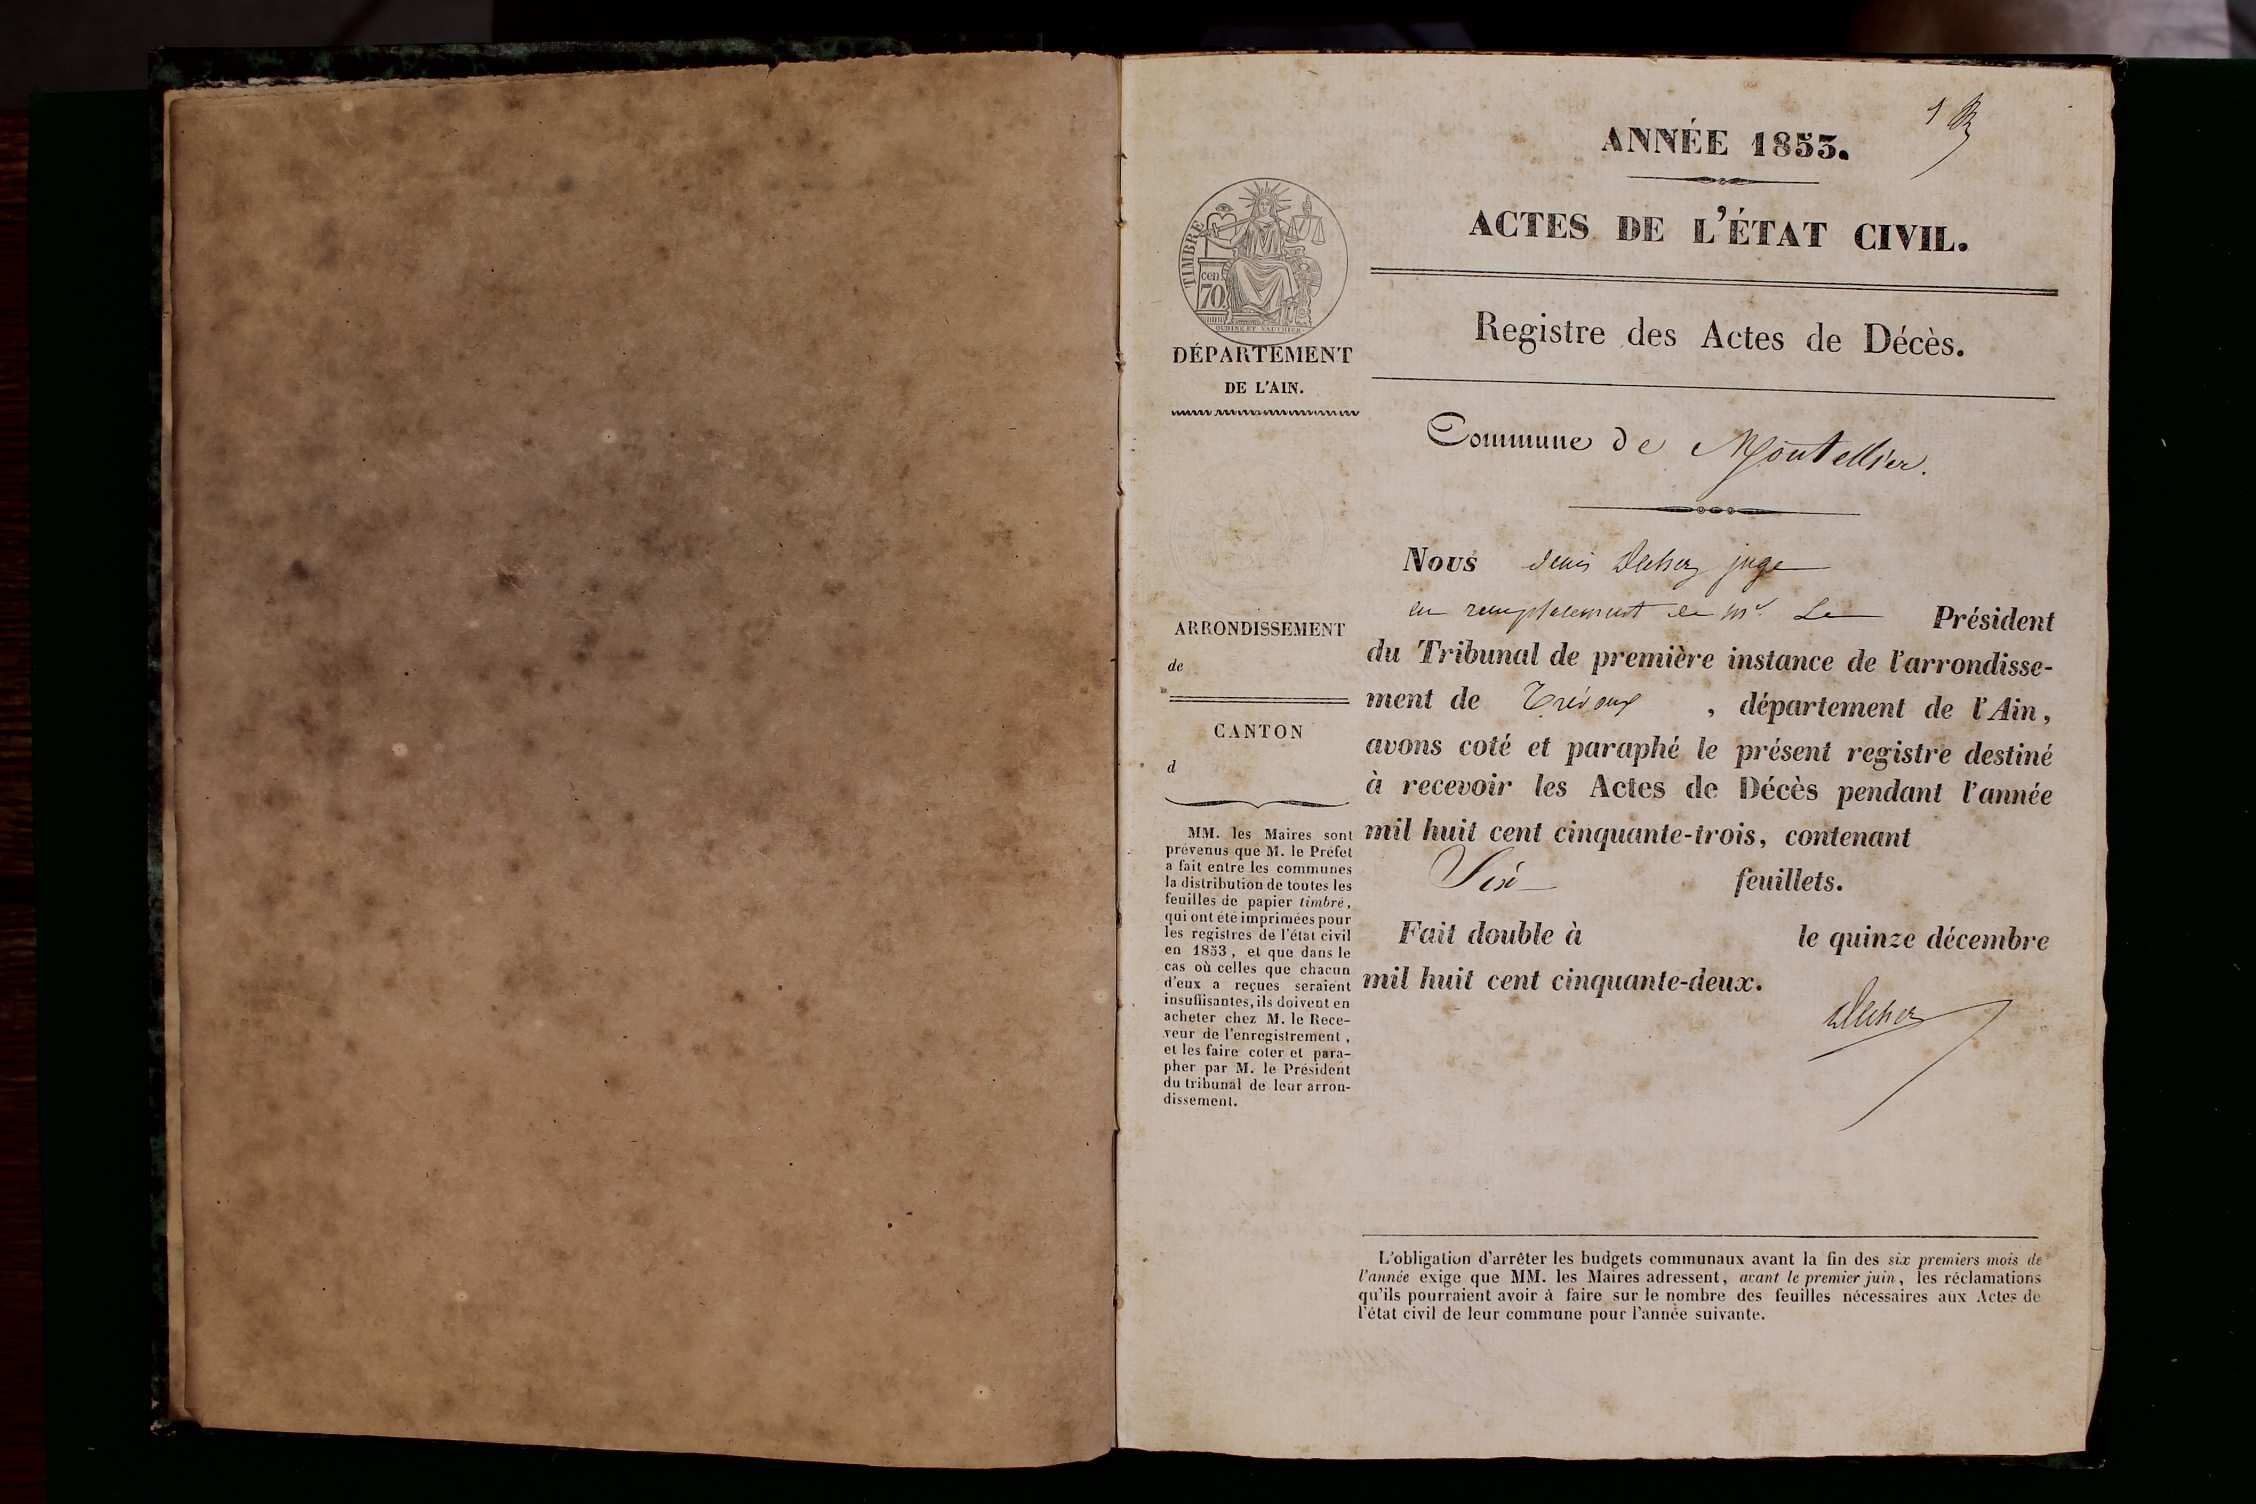 1
ANNÉE 1853.
ACTES DE L'ÉTAT CIVIL.
Registre des Actes de Décès.
Commune de Montellier.
Nous Denis juge
en remplacement de Mr Le Président
du Tribunal de première instance de l'arrondisse-
ment de Trévoux, département de l'Ain,
avons coté et paraphé le présent registre destiné
à recevoir les Actes de Décès pendant l'année
mil huit cent cinquante-trois, contenant
Six feuillets.
Fait double à le quinze décembre
mil huit cent cinquante-deux.
L'obligation d'arrêter les budgets communaux avant la fin des six premiers mois de
l'année exige que MM. les Maires adressent, avant le premier juin, les réclamations
qu'ils pourraient avoir à faire sur le nombre des feuilles nécessaires aux Actes de
l'état civil de leur commune pour l'année suivante.
TIMBRE
cen
70
OUDINE ET VAUTHIER
DÉPARTEMENT
DE L'AIN.
ARRONDISSEMENT
de
CANTON
d
MM. les Maires sont
prévenus que M. le Préfet
a fait entre les communes
la distribution de toutes les
feuilles de papier timbré,
qui ont été imprimées pour
les registres de l'état civil
en 1853, et que dans le
cas où celles que chacun
d'eux a reçues seraient
insuffisantes, ils doivent en
acheter chez M. le Rece-
veur de l'enregistrement,
et les faire coter et para-
pher par M. le Président
du tribunal de leur arron-
dissement.